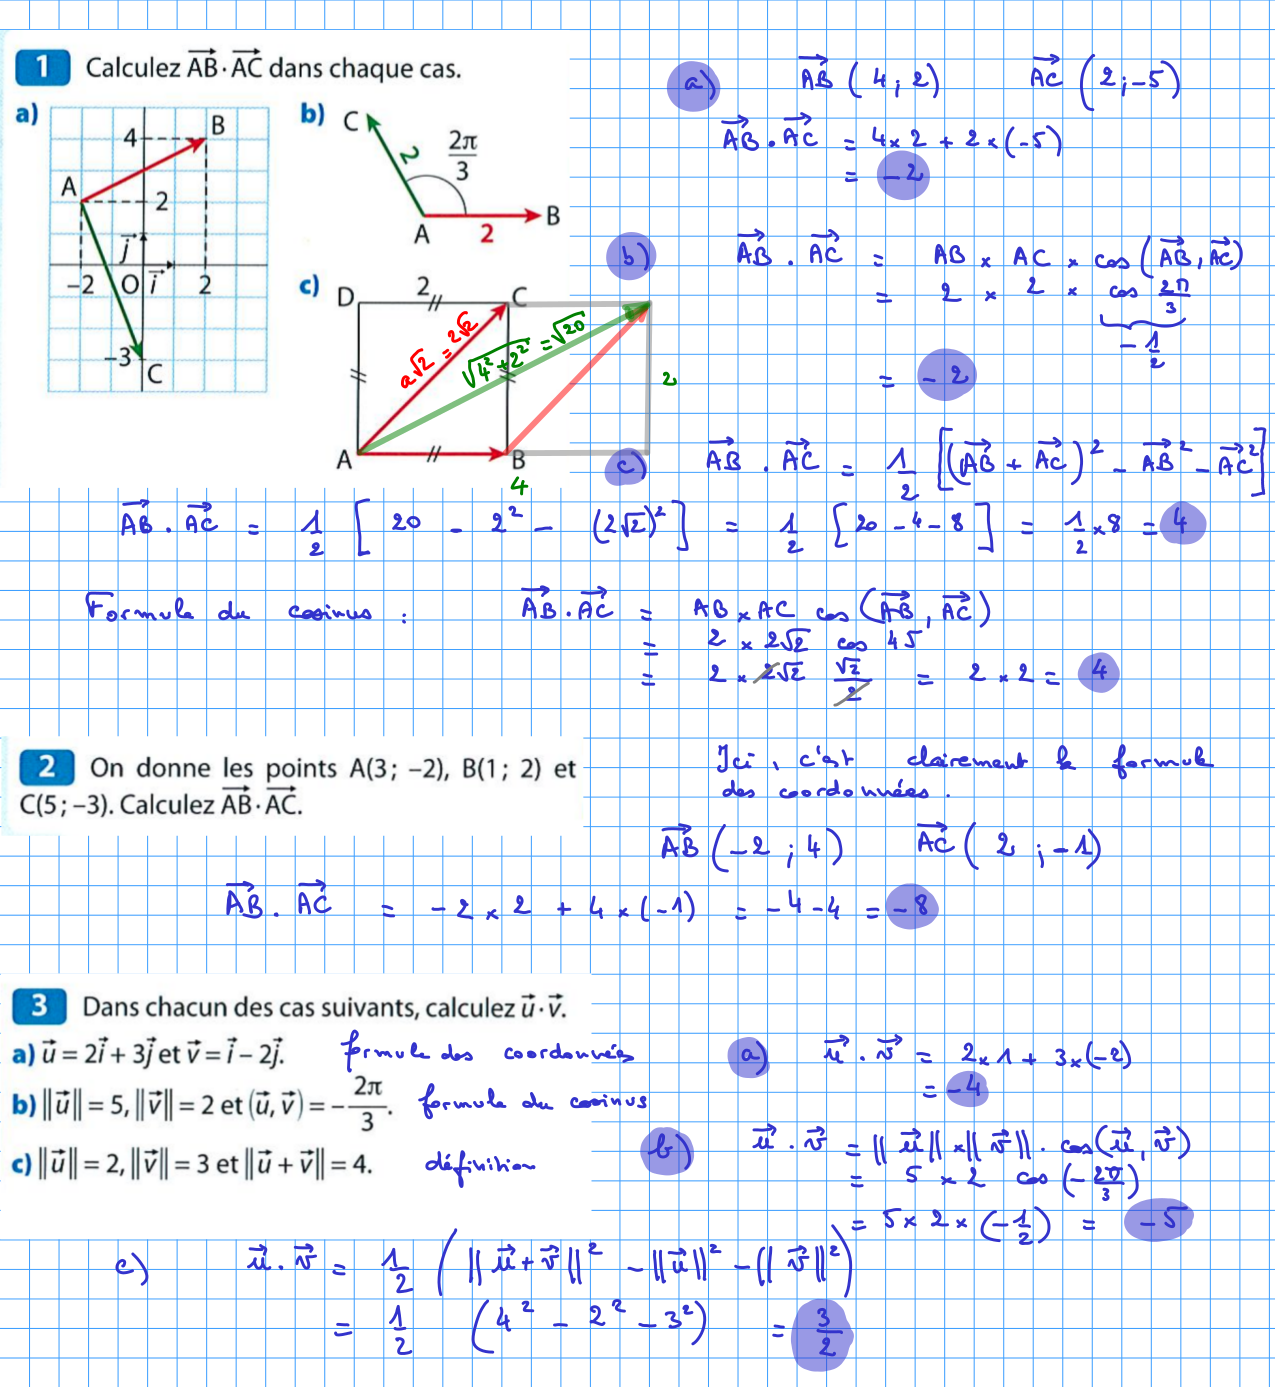 1 Calculez $\overrightarrow{AB} \cdot \overrightarrow{AC}$ dans chaque cas.
a)
4
B
A
2
$\vec{j}$
-2 O $\vec{i}$ 2
-3
C
b)
C
2
$\frac{2\pi}{3}$
A
2
B
c)
D 2 C
$a\sqrt{2} = 2\sqrt{2}$
$\sqrt{4^2 + 2^2} = \sqrt{20}$
2
A B
4
a) $\overrightarrow{AB} (4 ; 2)$ $\overrightarrow{AC} (2 ; -5)$
$\overrightarrow{AB} . \overrightarrow{AC} = 4 \times 2 + 2 \times (-5)$
= -2
b) $\overrightarrow{AB} . \overrightarrow{AC} = AB \times AC \times \cos(\overrightarrow{AB}, \overrightarrow{AC})$
= $2 \times 2 \times \cos \frac{2\pi}{3}$
$-\frac{1}{2}$
= -2
c) $\overrightarrow{AB} . \overrightarrow{AC} = \frac{1}{2} [(\overrightarrow{AB} + \overrightarrow{AC})^2 - \overrightarrow{AB}^2 - \overrightarrow{AC}^2]$
$\overrightarrow{AB} . \overrightarrow{AC} = \frac{1}{2} [20 - 2^2 - (2\sqrt{2})^2] = \frac{1}{2} [20 - 4 - 8] = \frac{1}{2} \times 8 = 4$
Formule du cosinus : $\overrightarrow{AB} . \overrightarrow{AC} = AB \times AC \cos(\overrightarrow{AB}, \overrightarrow{AC})$
= $2 \times 2\sqrt{2} \cos 45$
= $2 \times 2\sqrt{2} \frac{\sqrt{2}}{2} = 2 \times 2 = 4$
2 On donne les points A(3 ; -2), B(1 ; 2) et
C(5 ; -3). Calculez $\overrightarrow{AB} \cdot \overrightarrow{AC}$.
Ici, c'est clairement la formule
des coordonnées.
$\overrightarrow{AB} (-2 ; 4)$ $\overrightarrow{AC} (2 ; -1)$
$\overrightarrow{AB} . \overrightarrow{AC} = -2 \times 2 + 4 \times (-1) = -4 - 4 = -8$
3 Dans chacun des cas suivants, calculez $\vec{u} \cdot \vec{v}$.
a) $\vec{u} = 2\vec{i} + 3\vec{j}$ et $\vec{v} = \vec{i} - 2\vec{j}$. formule des coordonnées
b) $||\vec{u}|| = 5, ||\vec{v}|| = 2$ et $(\vec{u}, \vec{v}) = -\frac{2\pi}{3}$. formule du cosinus
c) $||\vec{u}|| = 2, ||\vec{v}|| = 3$ et $||\vec{u} + \vec{v}|| = 4$. définition
a) $\vec{u} . \vec{v} = 2 \times 1 + 3 \times (-2)$
= -4
b) $\vec{u} . \vec{v} = ||\vec{u}|| \times ||\vec{v}|| . \cos(\vec{u}, \vec{v})$
= $5 \times 2 \cos(-\frac{2\pi}{3})$
= $5 \times 2 \times (-\frac{1}{2}) = -5$
c) $\vec{u} . \vec{v} = \frac{1}{2} (||\vec{u} + \vec{v}||^2 - ||\vec{u}||^2 - (||\vec{v}||^2)$
= $\frac{1}{2} (4^2 - 2^2 - 3^2) = \frac{3}{2}$